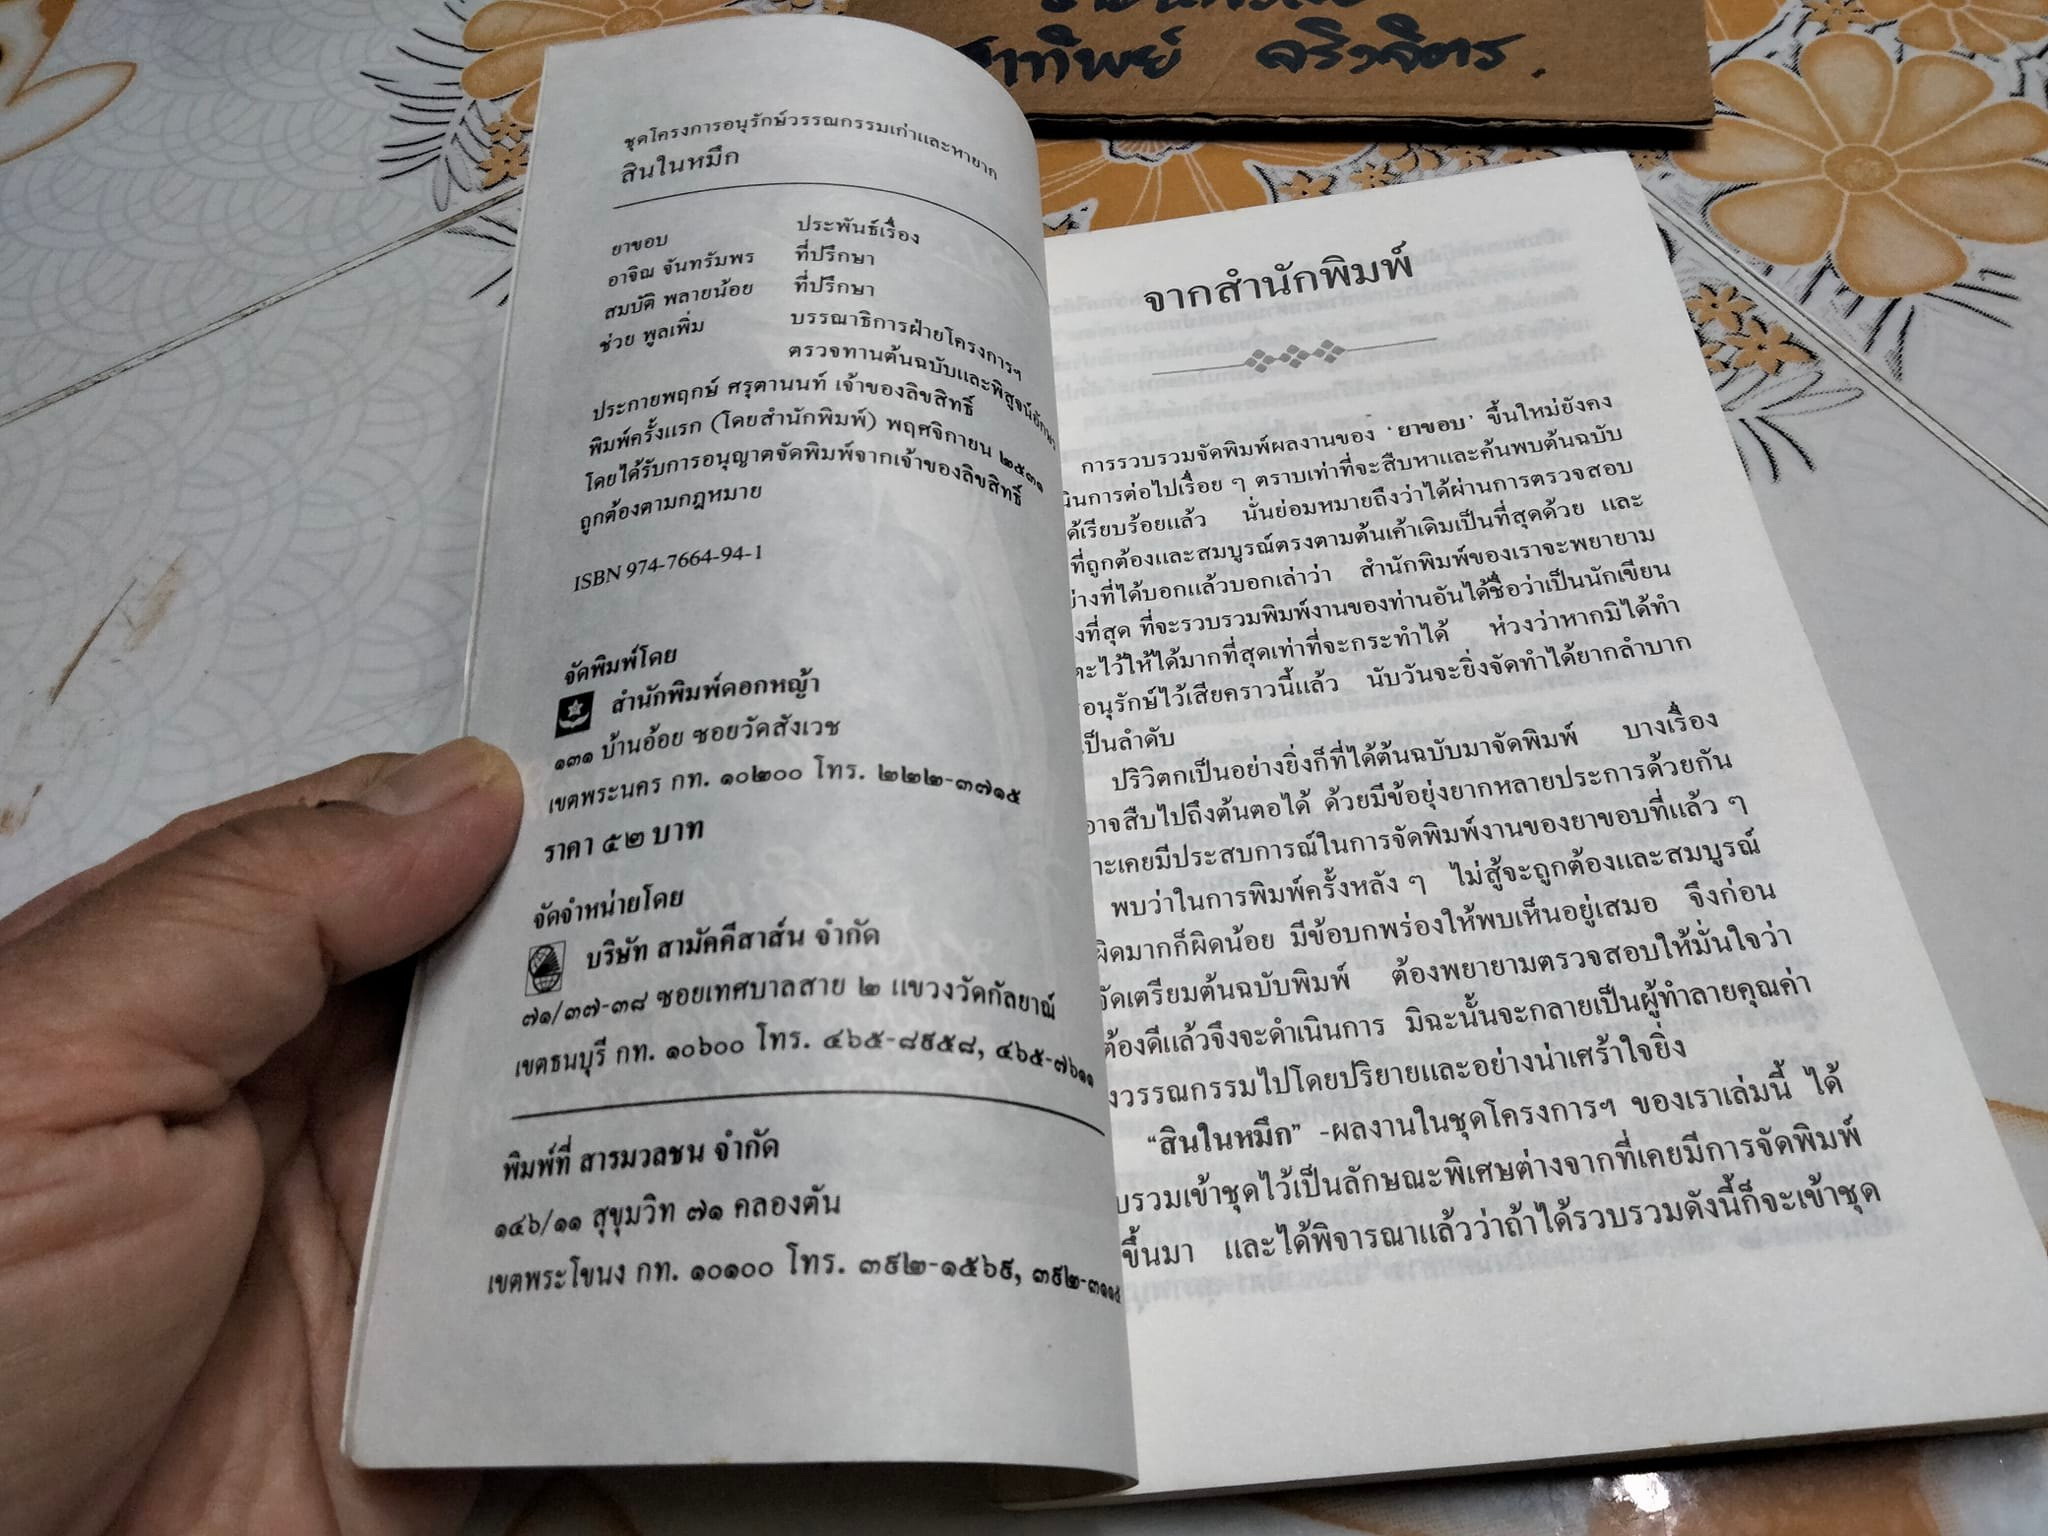 สาทิพย์ จริงจิตร.
ชุดโครงการอนุรักษ์วรรณกรรมเก่าและหายาก
สินในหมึก
ยาขอบ ประพันธ์เรื่อง
อาจิณ จันทรัมพร ที่ปรึกษา
สมบัติ พลายน้อย ที่ปรึกษา
ช่วย พูลเพิ่ม บรรณาธิการฝ่ายโครงการฯ
ตรวจทานต้นฉบับและพิสูจน์อักษร
ประกายพฤกษ์ ศรุตานนท์ เจ้าของลิขสิทธิ์
พิมพ์ครั้งแรก (โดยสำนักพิมพ์) พฤศจิกายน ๒๕๓๑
โดยได้รับการอนุญาตจัดพิมพ์จากเจ้าของลิขสิทธิ์
ถูกต้องตามกฎหมาย
ISBN 974-7664-94-1
จัดพิมพ์โดย
สำนักพิมพ์ดอกหญ้า
๑๓๑ บ้านอ้อย ซอยวัดสังเวช
เขตพระนคร กท. ๑๐๒๐๐ โทร. ๒๒๒-๓๗๑๕
ราคา ๕๒ บาท
จัดจำหน่ายโดย
บริษัท สามัคคีสาส์น จำกัด
๗๑/๓๗-๓๘ ซอยเทศบาลสาย ๒ แขวงวัดกัลยาณ์
เขตธนบุรี กท. ๑๐๖๐๐ โทร. ๔๖๕-๘๙๕๘, ๔๖๕-๗๖๑๑
พิมพ์ที่ สารมวลชน จำกัด
๑๔๖/๑๑ สุขุมวิท ๗๑ คลองตัน
เขตพระโขนง กท. ๑๐๑๐๐ โทร. ๓๙๒-๑๕๖๙, ๓๙๒-๓๑๑๕
จากสำนักพิมพ์
การรวบรวมจัดพิมพ์ผลงานของ 'ยาขอบ' ขึ้นใหม่ยังคง
เนินการต่อไปเรื่อย ๆ ตราบเท่าที่จะสืบหาและค้นพบต้นฉบับ
ด้เรียบร้อยแล้ว นั่นย่อมหมายถึงว่าได้ผ่านการตรวจสอบ
ที่ถูกต้องและสมบูรณ์ตรงตามต้นเค้าเดิมเป็นที่สุดด้วย และ
ย่างที่ได้บอกแล้วบอกเล่าว่า สำนักพิมพ์ของเราจะพยายาม
งที่สุด ที่จะรวบรวมพิมพ์งานของท่านอันได้ชื่อว่าเป็นนักเขียน
ตะไว้ให้ได้มากที่สุดเท่าที่จะกระทำได้ ห่วงว่าหากมิได้ทำ
รอนุรักษ์ไว้เสียคราวนี้แล้ว นับวันจะยิ่งจัดทำได้ยากลำบาก
เป็นลำดับ
ปริวิตกเป็นอย่างยิ่งก็ที่ได้ต้นฉบับมาจัดพิมพ์ บางเรื่อง
อาจสืบไปถึงต้นตอได้ ด้วยมีข้อยุ่งยากหลายประการด้วยกัน
าะเคยมีประสบการณ์ในการจัดพิมพ์งานของยาขอบที่แล้ว ๆ
พบว่าในการพิมพ์ครั้งหลัง ๆ ไม่สู้จะถูกต้องและสมบูรณ์
ผิดมากก็ผิดน้อย มีข้อบกพร่องให้พบเห็นอยู่เสมอ จึงก่อน
จัดเตรียมต้นฉบับพิมพ์ ต้องพยายามตรวจสอบให้มั่นใจว่า
ต้องดีแล้วจึงจะดำเนินการ มิฉะนั้นจะกลายเป็นผู้ทำลายคุณค่า
งวรรณกรรมไปโดยปริยายและอย่างน่าเศร้าใจยิ่ง
"สินในหมึก" -ผลงานในชุดโครงการฯ ของเราเล่มนี้ ได้
บรวมเข้าชุดไว้เป็นลักษณะพิเศษต่างจากที่เคยมีการจัดพิมพ์
ขึ้นมา และได้พิจารณาแล้วว่าถ้าได้รวบรวมดังนี้ก็จะเข้าชุด